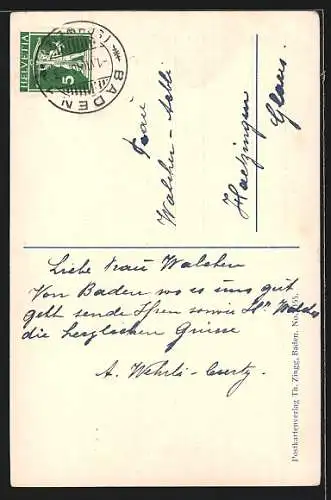 HELVETIA
5
BADEN
Frau
Walcher-
Haetzingen
Glarus.
Liebe Frau Walcher
Von Baden wo es uns gut
geht sende Ihnen sowie Hrn Walcher
die herzlichen Grüsse
A. Wehrli-
Postkartenverlag Th. Zingg, Baden. No.